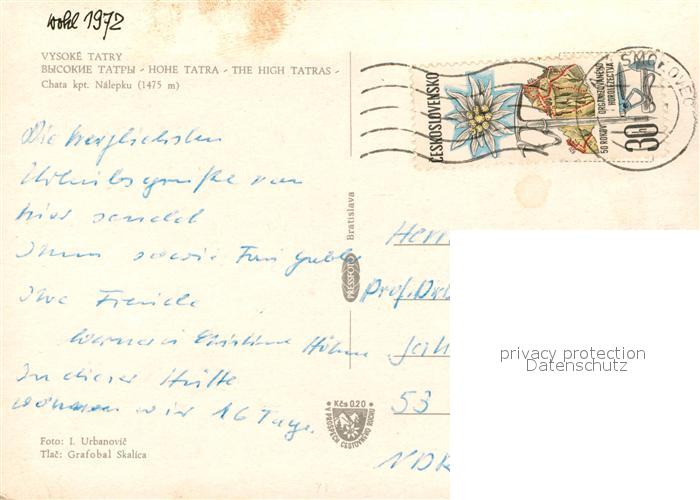 wohl 1972
VYSOKÉ TATRY
ВЫСОКИЕ ТАТРЫ - HOHE TATRA - THE HIGH TATRAS -
Chata kpt. Nálepku (1475 m)
Die herzlichsten
Urlaubsgrüße von
hier sendet
Ihnen sowie Frau
Ihre Familie
Werner u Christine Höhne
In dieser Hütte
wohnen wir 16 Tage.
Foto: I. Urbanovič
Tlač: Grafobal Skalica
PRESSFOTO Bratislava
Kčs 0.20
V PROSPECH CESTOVNÉHO RUCHU
ČESKOSLOVENSKO
50 ROKOV ORGANIZOVANÉHO
HOROLEZECTVA
30
SMOKOVEC
Herrn
Prof. Dr.
53
privacy protection
Datenschutz